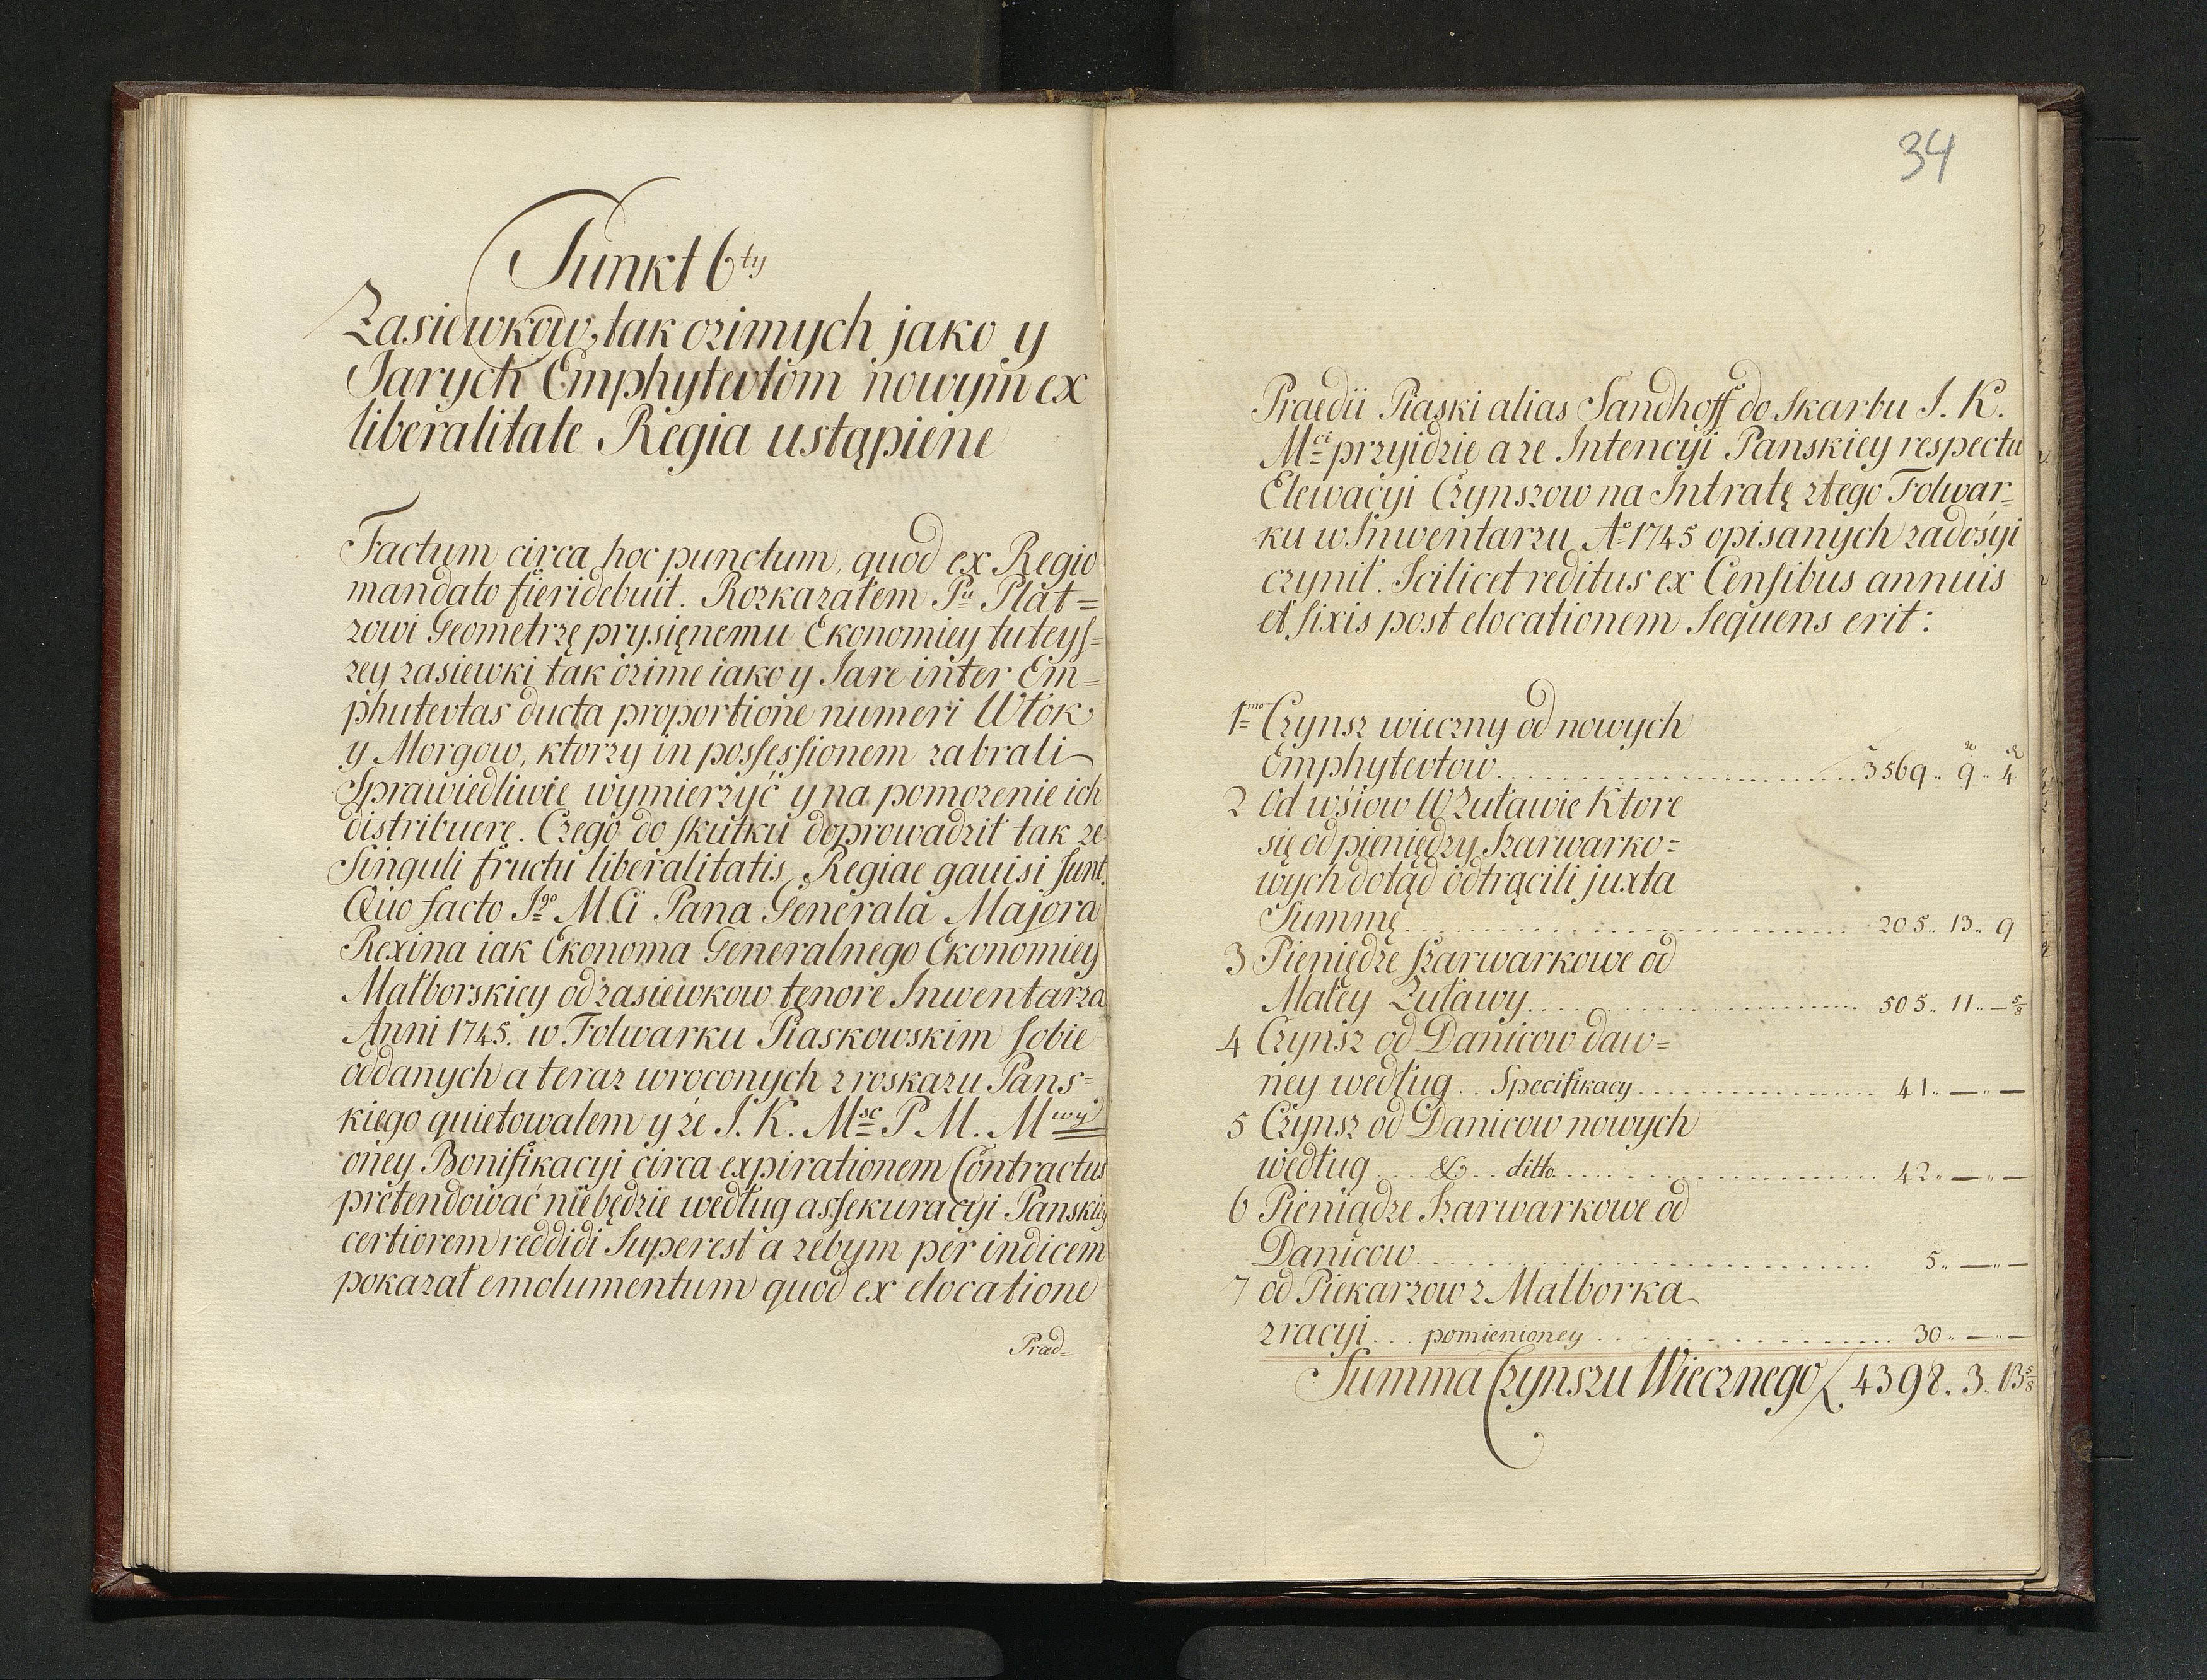 Punkt 6ty
Zasiewkow, tak ozimych jako y
Jarych Emphytevtom nowym ex
liberalitate Regia ustąpiene
Factum circa hoc punctum, quod ex Regio
mandato fieri debuit. Rozkazałem Pu Plat=
zowi Geometrzę prysięnemu Ekonomiey tuteyſ=
zey zasiewki tak ozime iako y Jare inter Em=
phutevtas ducta proportione numeri Włok
y Morgow, ktorzy in poſseſsionem zabrali
Sprawiedliwie wymierzyć y na pomozenie ich
distribuerę. Czego do ſkutku doprowadził tak ze
Singuli fructu liberalitatis Regiae gauisi ſunt.
Quo facto Jgo M.Ci Pana Generala Majora
Rexina iak Ekonoma Generalnego Ekonomiey
Małborskiey od zasiewkow tenore Inwentarza
Anni 1745. w Folwarku Piaskowskim ſobie
oddanych a teraz wroconych z roskazu Pans=
kiego quietowalem y że J. K. Msc P M. Mwy
oney Bonifikacyi circa expirationem Contractus
pretendować niebędzie według aſsekuracyi Panskiey
certiorem reddidi Superest a zebym per indicem
pokazał emolumentum quod ex elocatione
Præd=
34
Praedii Piaski alias Sandhoff do Skarbu J. K.
Mci przyidzie a ze Intencyi Panskiey respectu
Elewacyi Czynszow na Intratę ztego Folwar=
ku w Inwentarzu Ao 1745 opisanych zadośyi
czynił. Scilicet reditus ex Cenſibus annuis
et fixis post elocationem Sequens erit:
1mo Czynsz wieczny od nowych
Emphytevtow 3569.. 9.. 4
2 Od wśiow W Zuławie Ktore
się od pieniędzy Szarwarko=
wych dotąd odtrącili juxta
Summę 205.. 13.. 9
3 Pieniędze Szarwarkowe od
Małey Zuławy 505.. 11.. — 5/8
4 Czynsz od Danicow daw=
ney według .. Specifikacy 41.. —.. —
5 Czynsz od Danicow nowych
według ... & ... ditto 42.. —.. —
6 Pieniądze Szarwarkowe od
Danicow 5.. —.. —
7 od Piekarzow z Malborka
z racyi ... pomienioney 30.. —.. —
Summa Czynszu Wiecznego 4398. 3. 13 5/8